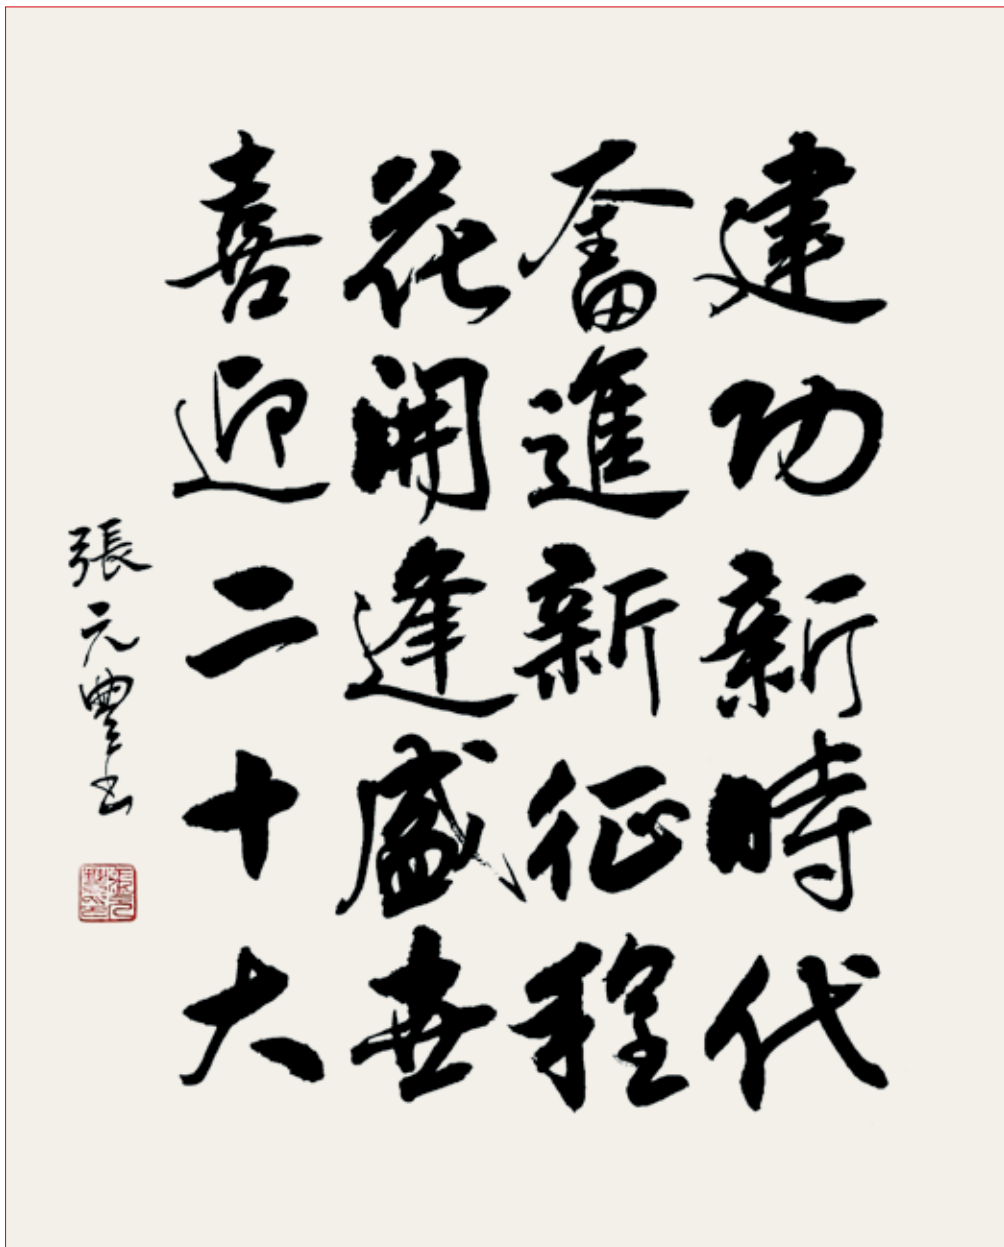 建功新時代
奮進新征程
花開逢盛世
喜迎二十大
張元豐書